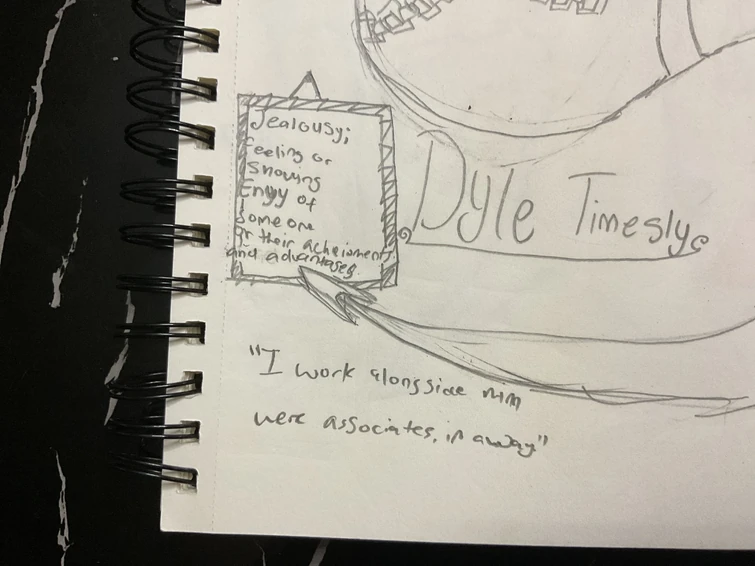 Jealousy;
feeling or
Showing
Envy of
Someone
or their acheioment
and advantages
Dyle Timesly
"I work alongside him
were associates, in away"